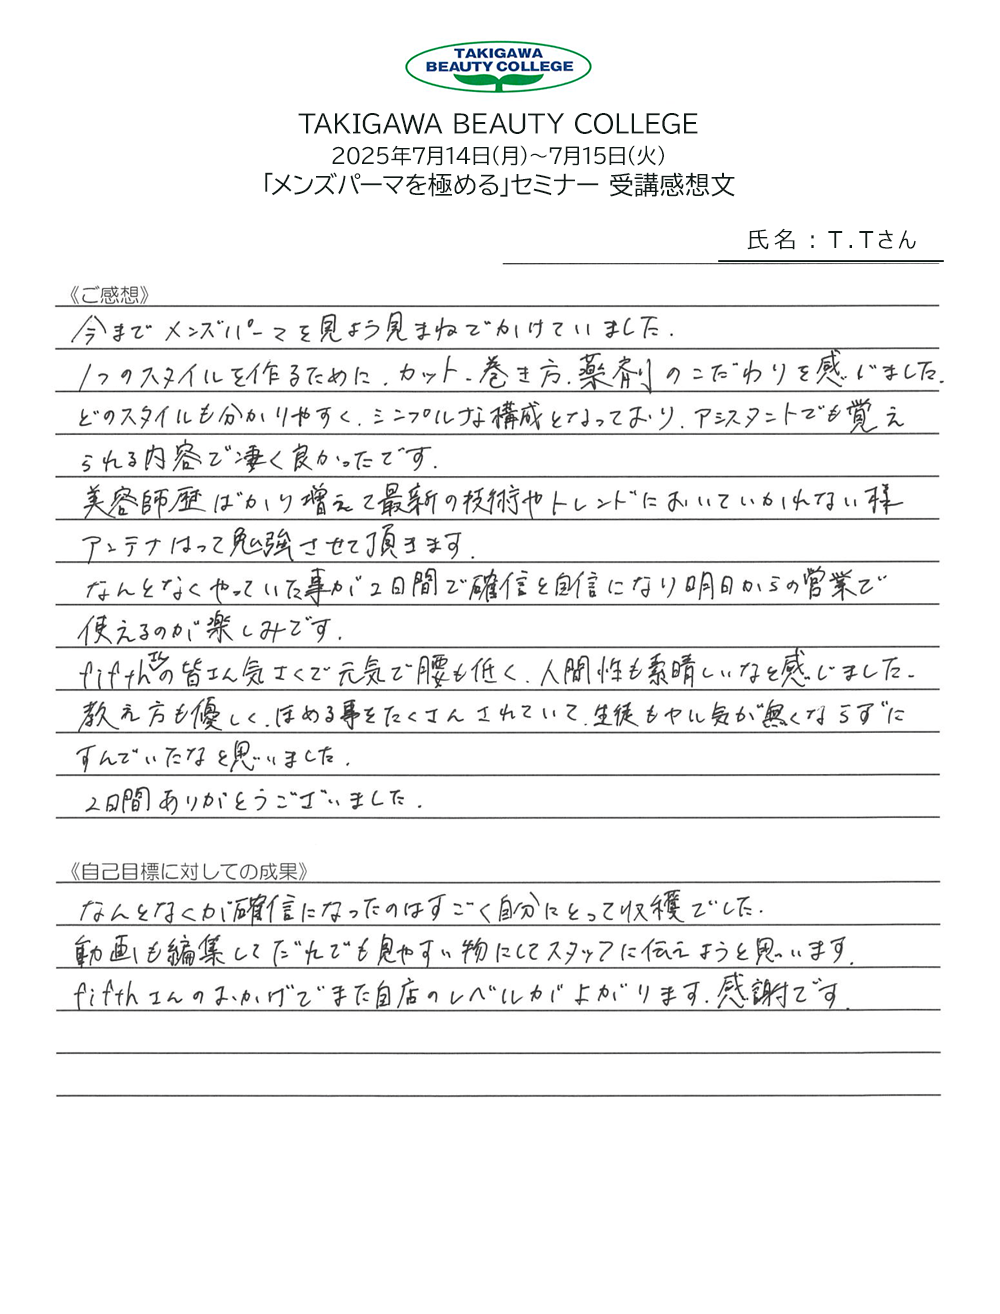 TAKIGAWA
BEAUTY COLLEGE
TAKIGAWA BEAUTY COLLEGE
2025年7月14日(月)～7月15日(火)
「メンズパーマを極める」セミナー 受講感想文
氏名：T.Tさん
《ご感想》
今までメンズパーマを見よう見まねでかけていました.
1つのスタイルを作るために、カット、巻き方、薬剤のこだわりを感じました.
どのスタイルも分かりやすく、シンプルな構成となっており、アシスタントでも覚え
られる内容で凄く良かったです.
美容師歴ばかり増えて最新の技術やトレンドにおいていかれない様
アンテナはって勉強させて頂きます.
なんとなくやっていた事が2日間で確信と自信になり明日からの営業で
使えるのが楽しみです.
fifthさんの皆さん気さくで元気で腰も低く、人間性も素晴しいなと感じました.
教え方も優しく、ほめる事をたくさんされていて、生徒もヤル気が無くならずに
すんでいたなと思いました.
2日間ありがとうございました.
《自己目標に対しての成果》
なんとなくが確信になったのはすごく自分にとって収穫でした.
動画も編集してだれでも見やすい物にしてスタッフに伝えようと思います.
fifthさんのおかげでまた自店のレベルがよがります.感謝です.